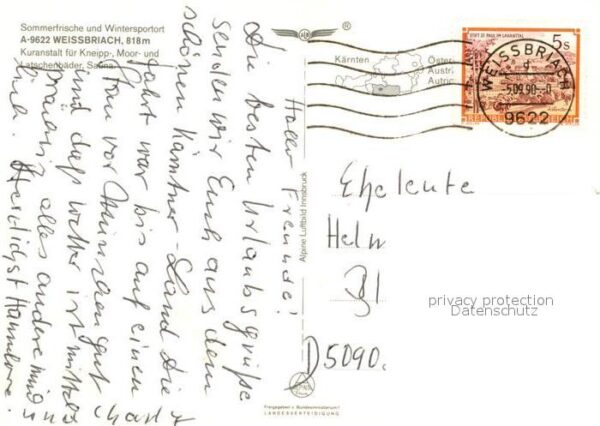 Sommerfrische und Wintersportort
A-9622 WEISSBRIACH, 818 m
Kuranstalt für Kneipp-, Moor- und
Latschenbäder, Sauna
Hallo Freunde!
Die besten Urlaubsgrüße
senden wir Euch aus dem
schönen Kärntner-Land die
Fahrt war bis auf einen
vor München gut
und das Wetter ist
alles andere
Herzlichst Hannelore.
Alpine Luftbild Innsbruck
Kärnten
STIFT ST. PAUL IM LAVANTTAL
5s
WEISSBRIACH
5.09.90
9622
REPUBLIK
Eheleute
Helm
privacy protection
Datenschutz
D 5090.
Freigegeben v. Bundesministerium f.
LANDESVERTEIDIGUNG